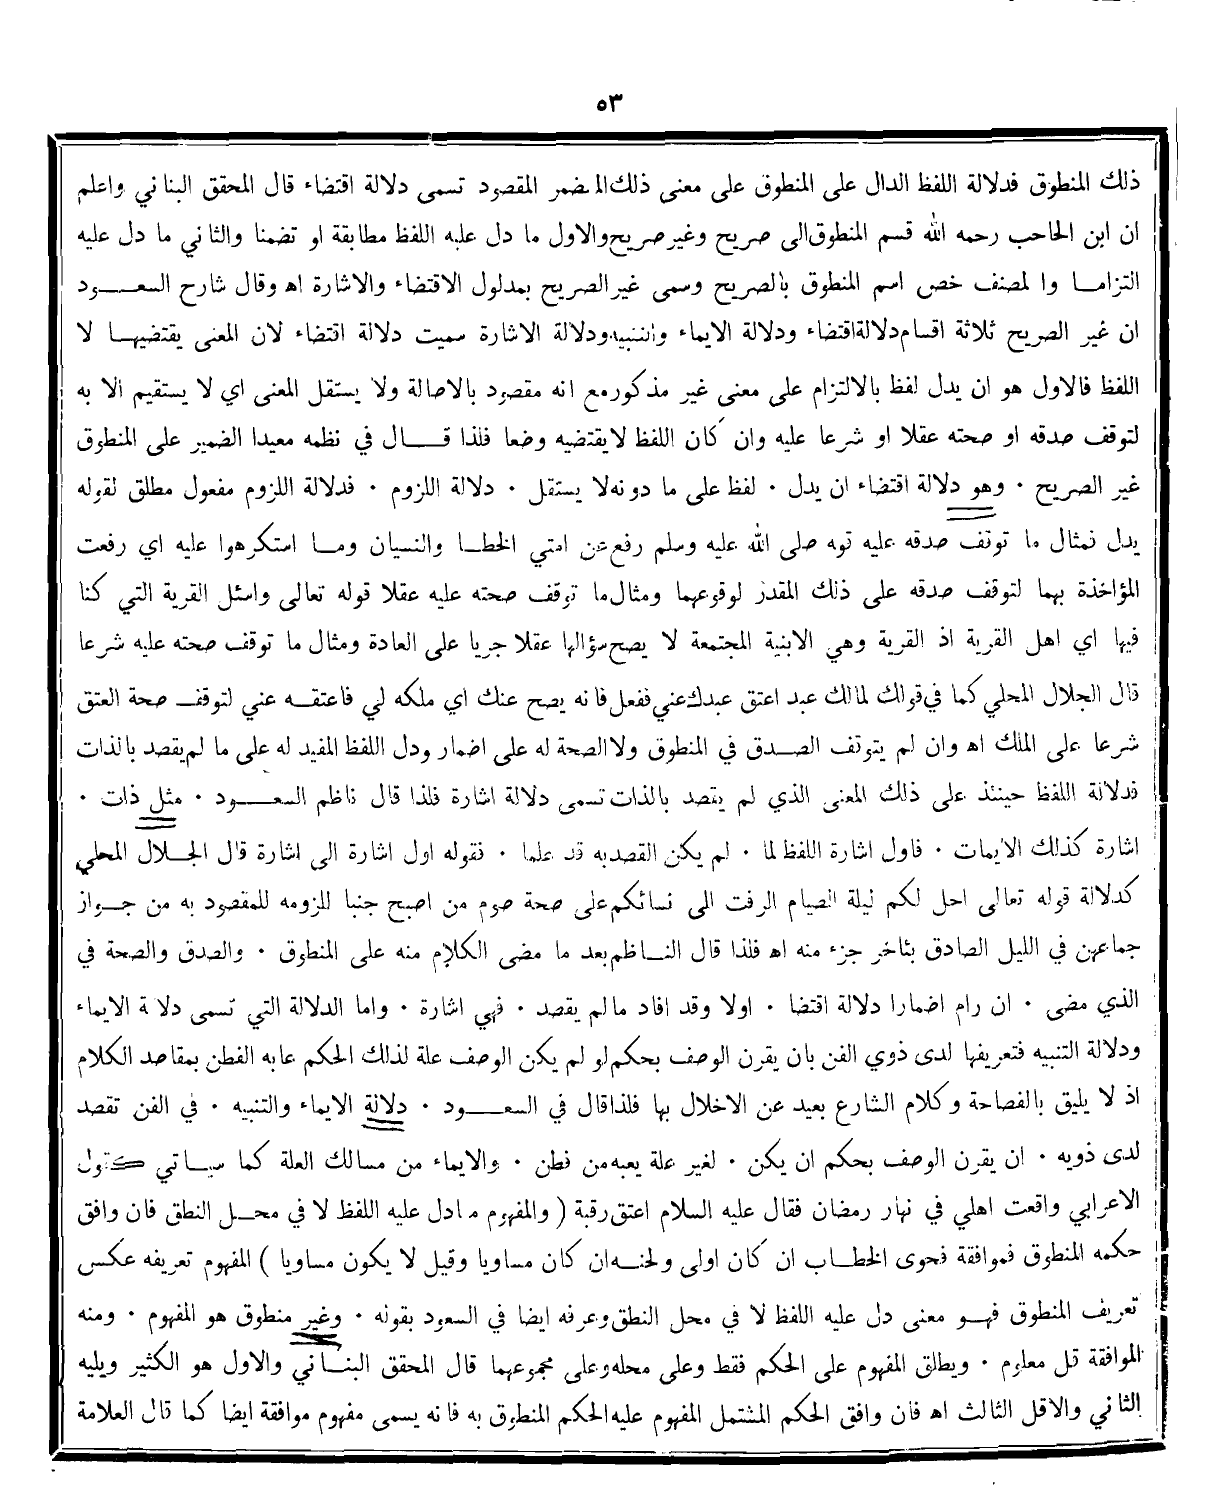 ٥٣
ذلك المنطوق فدلالة اللفظ الدال على المنطوق على معنى ذلك المضمر المقصود تسمى دلالة اقتضاء قال المحقق البناني واعلم
ان ابن الحاجب رحمه الله قسم المنطوق الى صريح وغير صريح والاول ما دل عليه اللفظ مطابقة او تضمنا والثاني ما دل عليه
التزاما والمصنف خص اسم المنطوق بالصريح وسمى غير الصريح بمدلول الاقتضاء والاشارة اه وقال شارح السعود
ان غير الصريح ثلاثة اقسام دلالة اقتضاء ودلالة الايماء والتنبيه ودلالة الاشارة سميت دلالة اقتضاء لان المعنى يقتضيها لا
اللفظ فالاول هو ان يدل لفظ بالالتزام على معنى غير مذكور مع انه مقصود بالاصالة ولا يستقل المعنى اي لا يستقيم الا به
لتوقف صدقه او صحته عقلا او شرعا عليه وان كان اللفظ لا يقتضيه وضعا فلذا قال في نظمه معيدا الضمير على المنطوق
غير الصريح ٠ وهو دلالة اقتضاء ان يدل ٠ لفظ على ما دونه لا يستقل ٠ دلالة اللزوم ٠ فدلالة اللزوم مفعول مطلق لقوله
يدل فمثال ما توقف صدقه عليه قوله صلى الله عليه وسلم رفع عن امتي الخطا والنسيان وما استكرهوا عليه اي رفعت
المؤاخذة بهما لتوقف صدقه على ذلك المقدر لوقوعهما ومثال ما توقف صحته عليه عقلا قوله تعالى واسئل القرية التي كنا
فيها اي اهل القرية اذ القرية وهي الابنية المجتمعة لا يصح سؤالها عقلا جريا على العادة ومثال ما توقف صحته عليه شرعا
قال الجلال المحلي كما في قولك لمالك عبد اعتق عبدك عني ففعل فانه يصح عنك اي ملكه لي فاعتقه عني لتوقف صحة العتق
شرعا على الملك اه وان لم يتوقف الصدق في المنطوق ولا الصحة له على اضمار ودل اللفظ المفيد له على ما لم يقصد بالذات
فدلالة اللفظ حينئذ على ذلك المعنى الذي لم يقصد بالذات تسمى دلالة اشارة فلذا قال ناظم السعود ٠ مثل ذات ٠
اشارة كذلك الايمات ٠ فاول اشارة اللفظ لما ٠ لم يكن القصد به قد علما ٠ فقوله اول اشارة الى اشارة قال الجلال المحلي
كدلالة قوله تعالى احل لكم ليلة الصيام الرفث الى نسائكم على صحة صوم من اصبح جنبا للزومه للمقصود به من جواز
جماعهن في الليل الصادق بئاخر جزء منه اه فلذا قال الناظم بعد ما مضى الكلام منه على المنطوق ٠ والصدق والصحة في
الذي مضى ٠ ان رام اضمارا دلالة اقتضا ٠ اولا وقد افاد ما لم يقصد ٠ فهي اشارة ٠ واما الدلالة التي تسمى دلالة الايماء
ودلالة التنبيه فتعريفها لدى ذوي الفن بان يقرن الوصف بحكم لو لم يكن الوصف علة لذلك الحكم عابه الفطن بمقاصد الكلام
اذ لا يليق بالفصاحة وكلام الشارع بعيد عن الاخلال بها فلذا قال في السعود ٠ دلالة الايماء والتنبيه ٠ في الفن تقصد
لدى ذويه ٠ ان يقرن الوصف بحكم ان يكن ٠ لغير علة يعبه من فطن ٠ والايماء من مسالك العلة كما سياتي كقول
الاعرابي واقعت اهلي في نهار رمضان فقال عليه السلام اعتق رقبة ( والمفهوم ما دل عليه اللفظ لا في محل النطق فان وافق
حكمه المنطوق فموافقة فحوى الخطاب ان كان اولى ولحنه ان كان مساويا وقيل لا يكون مساويا ) المفهوم تعريفه عكس
تعريف المنطوق فهو معنى دل عليه اللفظ لا في محل النطق وعرفه ايضا في السعود بقوله ٠ وغير منطوق هو المفهوم ٠ ومنه
الموافقة قل معلوم ٠ ويطلق المفهوم على الحكم فقط وعلى محله وعلى مجموعهما قال المحقق البناني والاول هو الكثير ويليه
الثاني والاقل الثالث اه فان وافق الحكم المشتمل المفهوم عليه الحكم المنطوق به فانه يسمى مفهوم موافقة ايضا كما قال العلامة